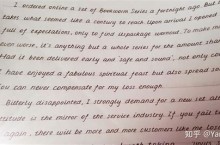 I ordered online a set of Bookworm Series a fortnight ago. But
takes what seemed like a century to reach. Upon arrival I opened
full of expectations, only to find its package wormout. To make
even worse, it's anything but a whole series for the amount
Had it been delivered early and safe and sound, not only could
I have enjoyed a fabulous spiritual feast but also spread
You can never compensate for my loss enough.
Bitterly disappointed, I strongly demand for a new set
titude is the mirror of the service industry. If you fail to
again, there will be more and more customers like me
知乎